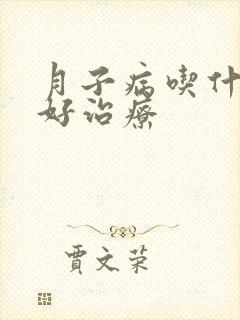 月子病喫什
好治療
賈文荣